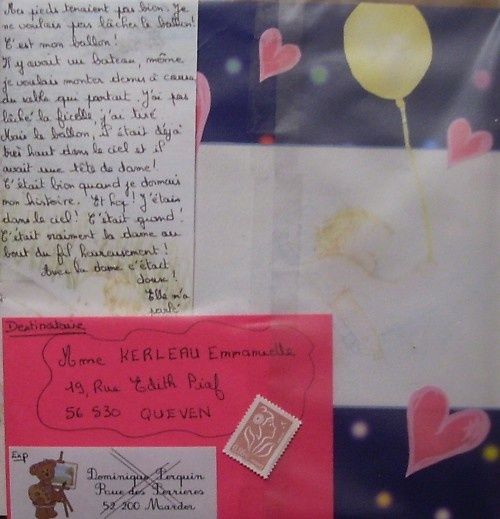 Mes pieds tenaient pas bien. Je
ne voulais pas lâcher le ballon!
C'est mon ballon!
Il y avait un bateau, même
je voulais monter dessus à cause
du sable qui partait. J'ai pas
lâché la ficelle, j'ai tiré
Mais le ballon, il était déjà
très haut dans le ciel et il
avait une tête de dame!
C'était bien quand je dormais
mon histoire. Et hop! J'étais
dans le ciel! C'était grand!
C'était vraiment la dame au
bout du fil heureusement!
Avec la dame c'était
doux!
Elle m'a
parlé
Destinataire
Mme KERLEAU Emmanuelle
19, Rue Edith Piaf
56 530 QUEVEN
Exp
Dominique Perquin
Rue des Perrières
52 200 Mardor